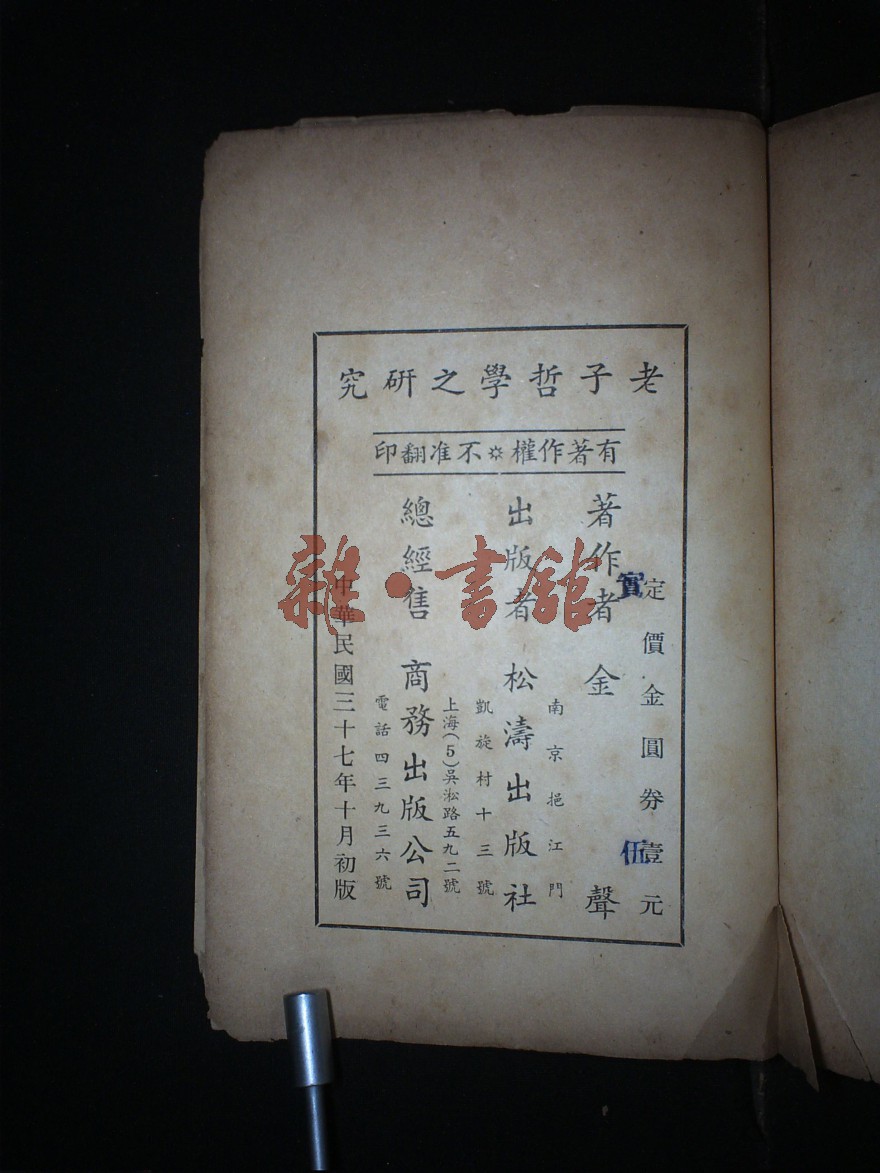 老子哲學之研究
有著作權※不准翻印
定價金圓券壹元
實
伍
著作者 金聲
南京挹江門
出版者 松濤出版社
凱旋村十三號
上海(5)吳淞路五九二號
總經售 商務出版公司
電話四三九三六號
中華民國三十七年十月初版
雜·書館